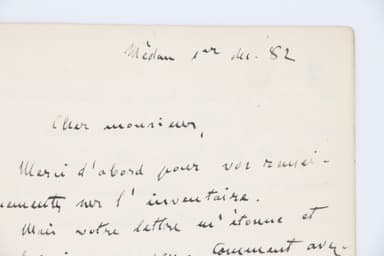 Médan 1er dec. 82
Cher monsieur,
Merci d'abord pour vos rensei-
nements sur l'inventaire.
Mais votre lettre m'étonne et
Comment avez-